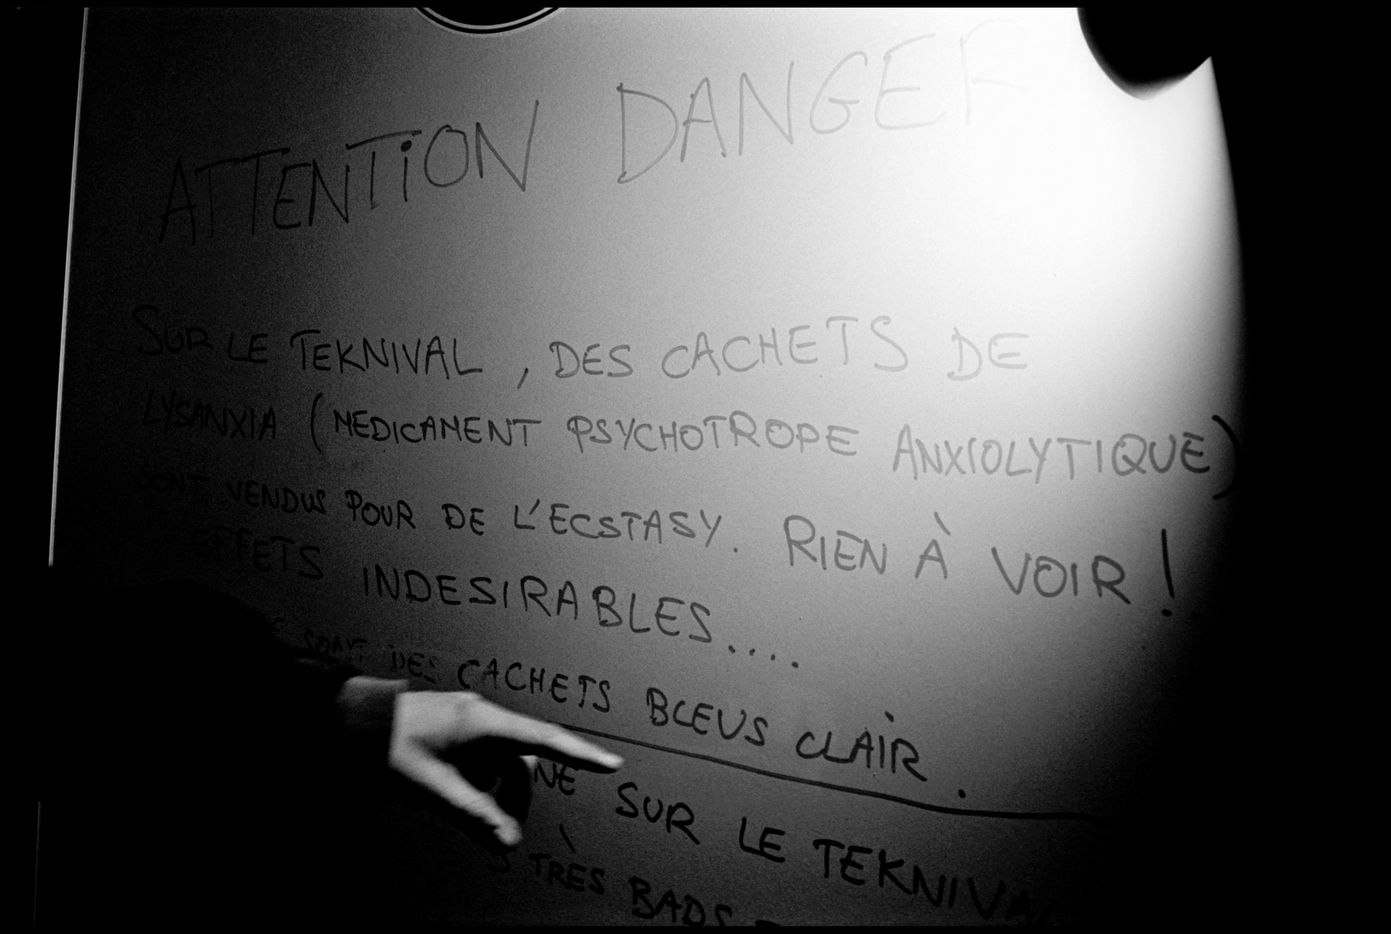 ATTENTION DANGER
SUR LE TEKNIVAL, DES CACHETS DE
LYSANXIA (MEDICAMENT PSYCHOTROPE ANXIOLYTIQUE)
SONT VENDUS POUR DE L'ECSTASY. RIEN À VOIR !
EFFETS INDESIRABLES....
SONT DES CACHETS BLEUS CLAIR.
SUR LE TEKNIVAL
TRÈS BADS